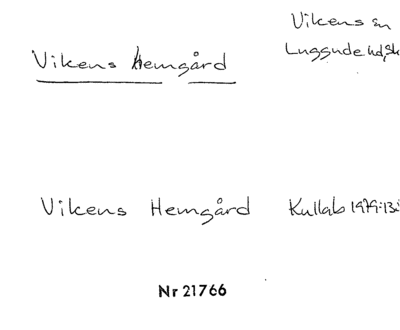 Vikens sn
Luggude hd, Sk
Vikens Hemgård
Vikens Hemgård Kullab 1979:13
Nr 21766